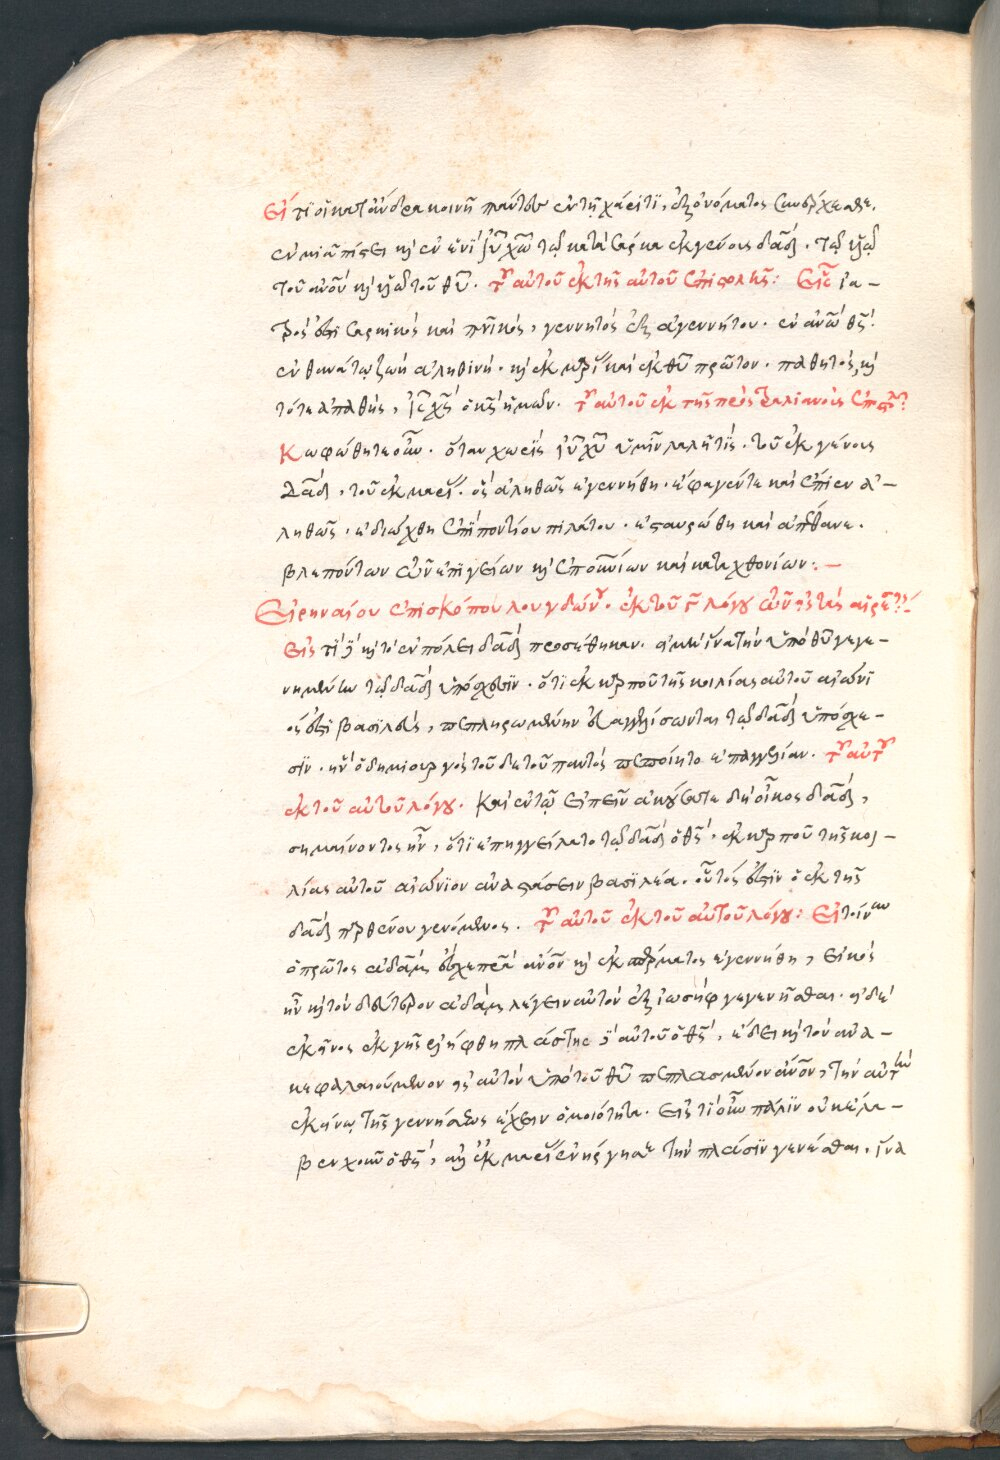 Εἴ τι οἱ κατ' ἄνδρα κοινῇ πάντες ἐν τῇ χάριτι, ἐξ ὀνόματος συνέρχεσθε.
ἐν μιᾷ πίστει κ(αὶ) ἐν ἑνὶ ἰῦ χῶ τῷ κατὰ σάρκα ἐκ γένους δα̅δ. τῷ υἱῷ
τοῦ ἀνο̅υ κ(αὶ) υἱῷ τοῦ θυ̅. τοῦ αὐτοῦ ἐκ τῆς αὐτοῦ ἐπιστολῆς: Εἷς ἰα–
τρός ἐστι σαρκικός καὶ πνικός, γεννητὸς ἐξ ἀγεννήτου. ἐν ἀνω̅ θς̅.
ἐν θανάτῳ ζωὴ ἀληθινή. κ(αὶ) ἐκ μαρί(ας) καὶ ἐκ θυ̅ πρῶτον. παθητός, κ(αὶ)
τότε ἀπαθής, ις̅ χς̅ ὁ κς̅ ἡμῶν. τοῦ αὐτοῦ ἐκ τῆς πρὸς τραλιανοὺς ἐπιστολῆς
Κωφώθητε οὖν. ὅταν χωρὶς ἰυ̅ χυ̅ ὑμῖν λαλῇ τίς. τοῦ ἐκ γένους
Δα̅δ, τοῦ ἐκ μαρί(ας). ὃς ἀληθῶς ἐγεννήθη. ἔφαγέν τε καὶ ἔπιεν ἀ–
ληθῶς. ἐδιώχθη ἐπὶ ποντίου πιλάτου. ἐσταυρώθη καὶ ἀπέθανε.
βλεπόντων τῶν ἐπιγείων κ(αὶ) ἐπουνίων καὶ καταχθονίων:–
Εἰρηναίου ἐπισκόπου λουγδών(ου). ἐκ τοῦ γ̅ λόγου τῶν πρὸς τὰς αἱρέ(σεις)
Εἰς τί δὲ κ(αὶ) τὸ ἐν πόλει δα̅δ προσέθηκαν. εἰ μὴ ἵνα τὴν ὑπὸ θυ̅ γεγε–
νημένην τῷ δα̅δ ὑπόσχεσιν. ὅτι ἐκ καρποῦ τῆς κοιλίας αὐτοῦ αἰώνι
ός ἐστι βασιλεύς, πεπληρωμένην εὐαγγελίσωνται τῷ δα̅δ ὑπόσχε–
σιν. ἣν ὁ δημιουργὸς τοῦδε τοῦ παντὸς πεποίητο ἐπαγγελίαν. τοῦ αὐτοῦ
ἐκ τοῦ αὐτοῦ λόγου. Καὶ ἐν τῷ εἰπεῖν ἀκούσατε δὴ οἶκος δα̅δ,
σημαίνοντος ἦν, ὅτι ἐπηγγείλατο τῷ δα̅δ ὁ θς̅, ἐκ καρποῦ τῆς κοι–
λίας αὐτοῦ αἰώνιον ἀναστάσειν βασιλέα. οὗτός ἐστιν ὁ ἐκ τῆς
δα̅δ παρθένου γενόμενος. τοῦ αὐτοῦ ἐκ τοῦ αὐτοῦ λόγου: Εἰ τοίνυν
ὁ πρῶτος ἀδὰμ ἔσχε πρα̅ ἀνο̅ν κ(αὶ) ἐκ σπέρματος ἐγεννήθη, εἰκὸς
ἦν κ(αὶ) τὸν δεύτερον ἀδὰμ λέγειν αὐτὸν ἐξ ἰωσὴφ γεγενῆσθαι. εἰ δὲ
ἐκεῖνος ἐκ γῆς ἐλήφθη πλάστης δὲ αὐτοῦ ὁ θς̅, ἔδει κ(αὶ) τὸν ἀνα–
κεφαλαιούμενον εἰς αὐτὸν ὑπὸ τοῦ θυ̅ πεπλασμένον ἀνο̅ν, τὴν αὐτὴν
ἐκείνῳ τῆς γεννήσεως ἔχειν ὁμοιότητα. Εἰς τί οὖν πάλιν οὐκ ἔλα–
βεν χοῦν ὁ θς̅, ἀλλ' ἐκ μαρί(ας) ἐνήργησε τὴν πλάσιν γενέσθαι. ἵνα